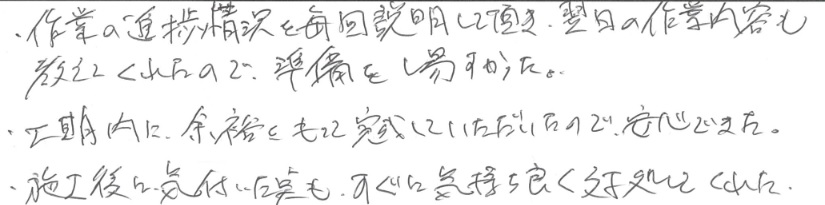 ・作業の進捗情況を毎回説明して頂き、翌日の作業内容も
教えてくれたので、準備をし易すかった。
・工期内に、余裕をもって完成していただいたので、安心できた。
・施工後に気付いた点も、すぐに気持ち良く対処してくれた。